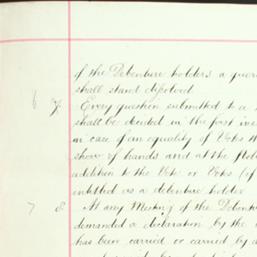 of the Debenture holders a quor
shall stand dissolved
6 7. Every question submitted to a
shall be decided in the first in
in case of an equality of Votes th
show of hands and at the Poll
addition to the Vote or Votes (if
entitled as a debenture holder
7 8. At any Meeting of the Debentu
demanded a declaration by the
has been carried or carried by a